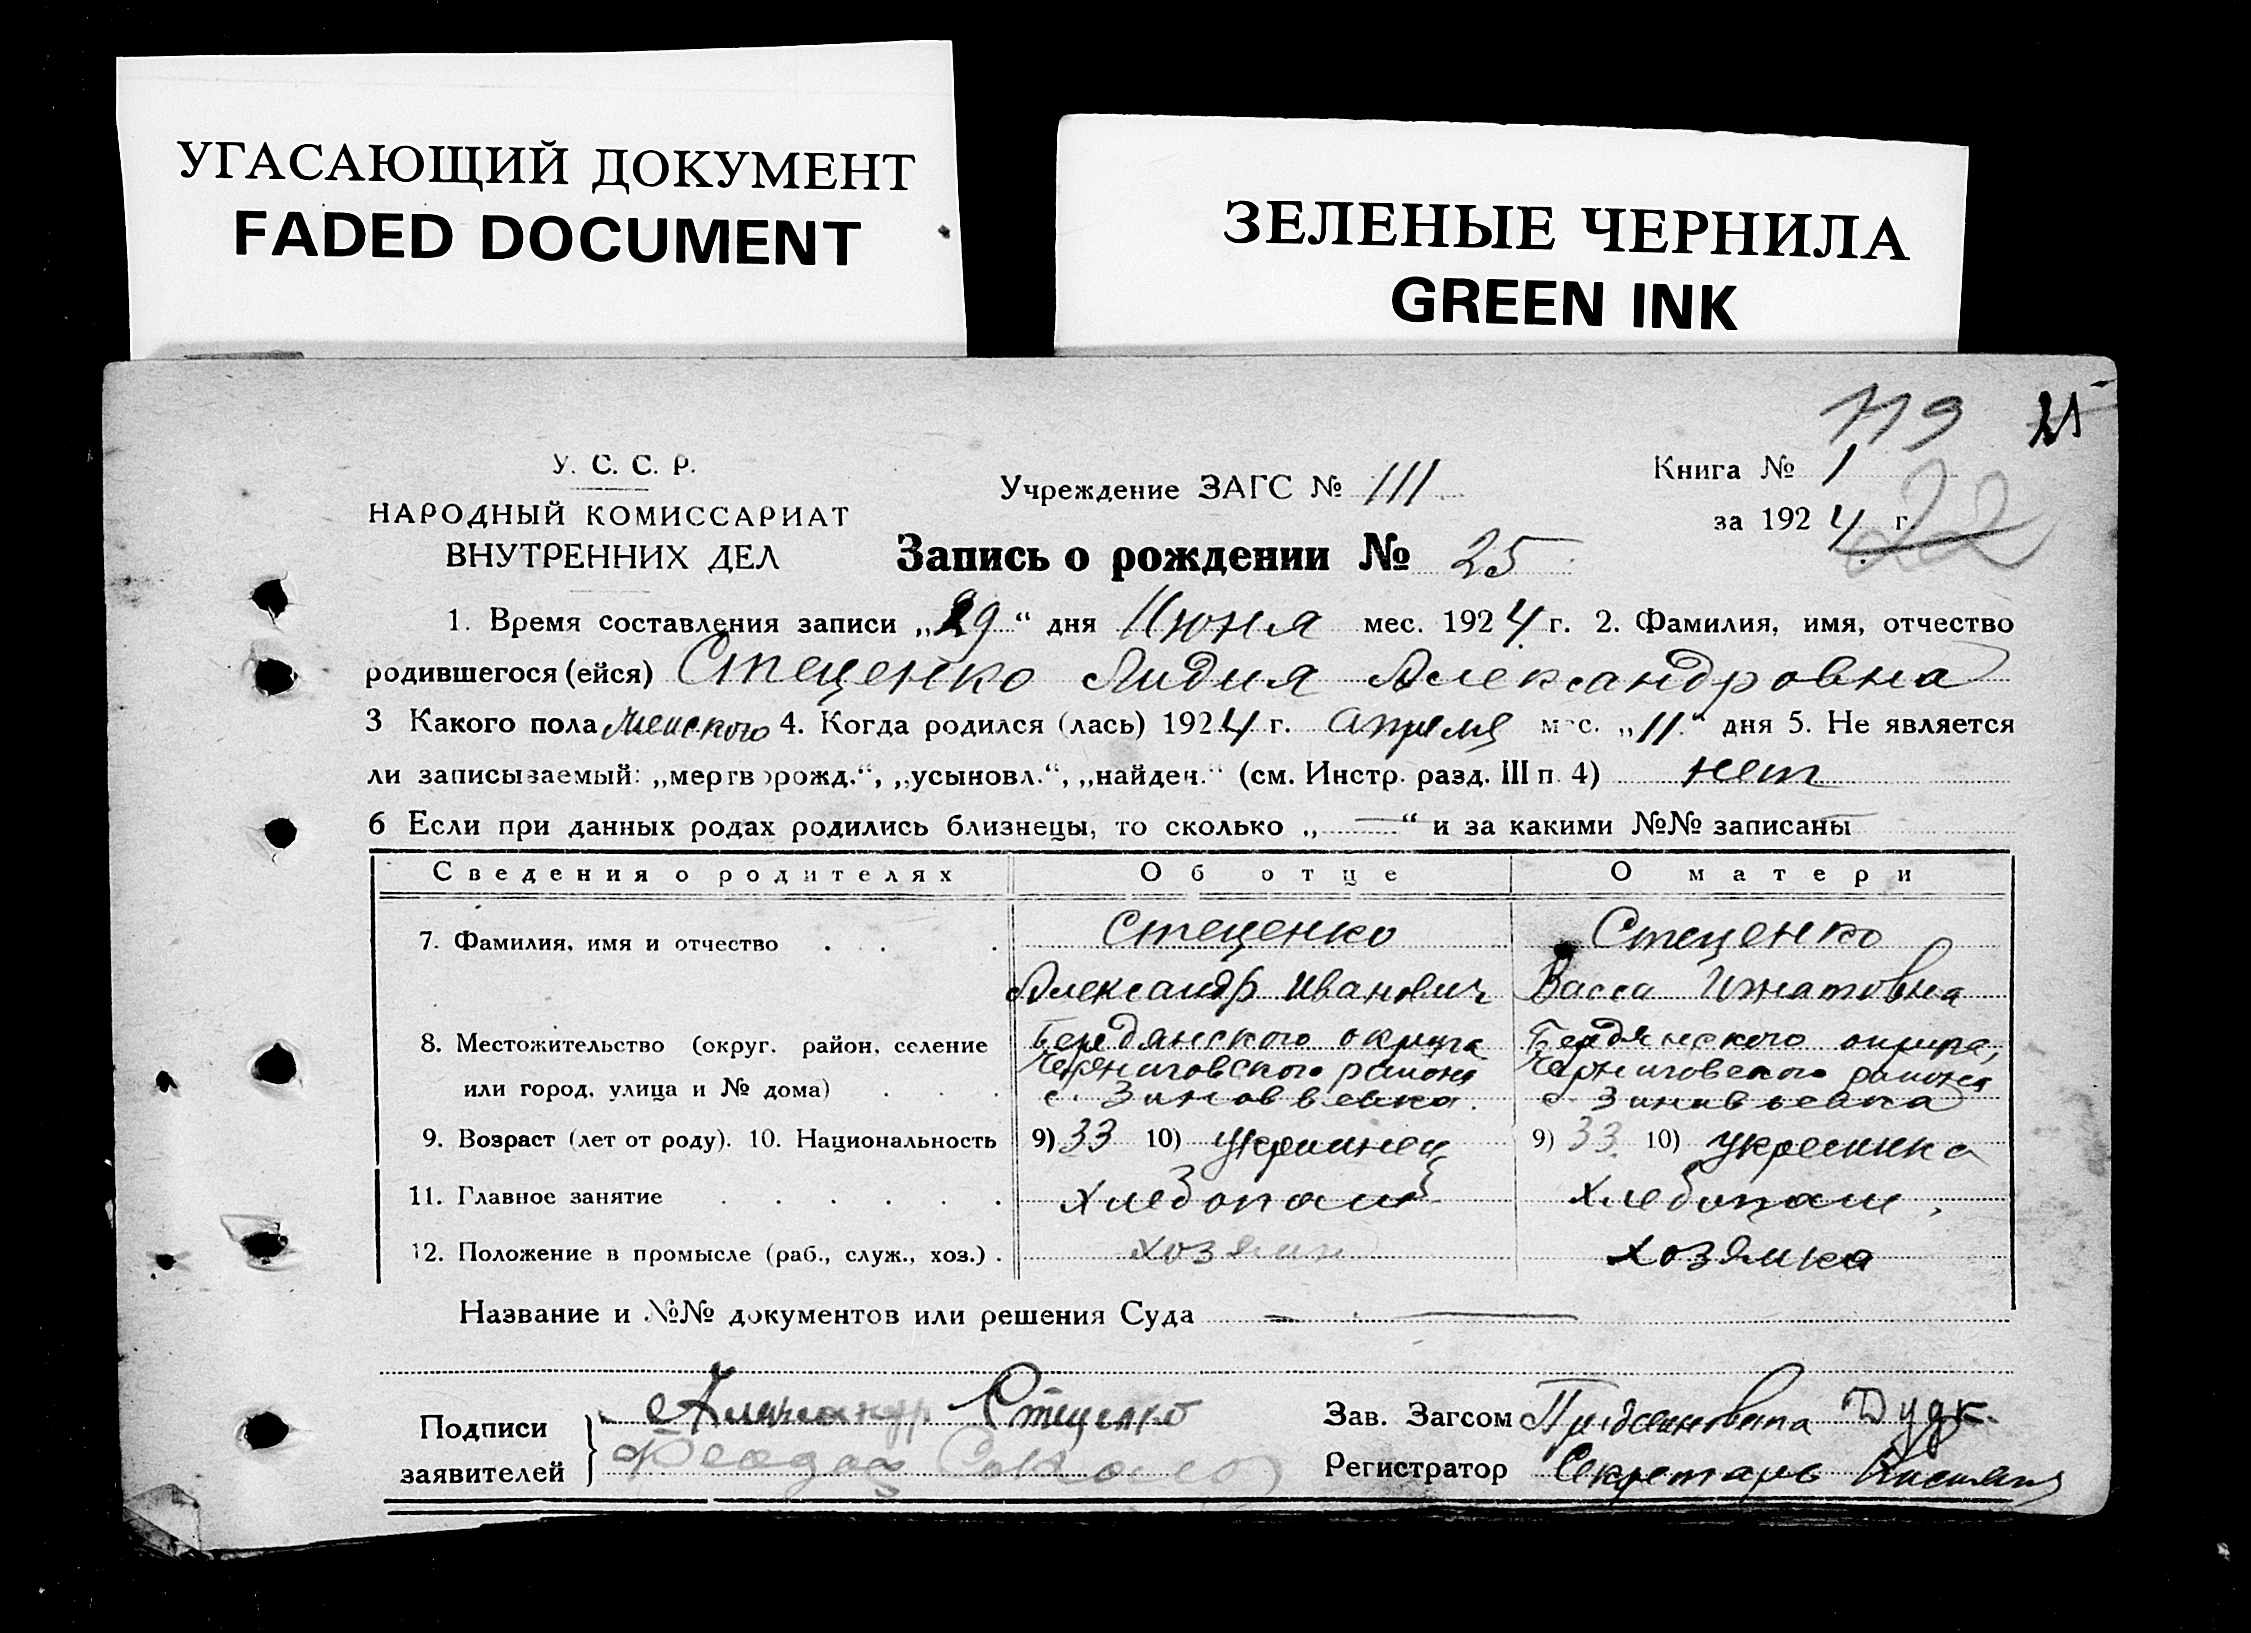 УГАСАЮЩИЙ ДОКУМЕНТ
FADED DOCUMENT
ЗЕЛЕНЫЕ ЧЕРНИЛА
GREEN INK
119 21
У. С. С. Р.
НАРОДНЫЙ КОМИССАРИАТ
ВНУТРЕННИХ ДЕЛ
Учреждение ЗАГС № 111
Книга № 1
за 1924 г.
22
Запись о рождении № 25
1. Время составления записи „29“ дня Июня мес. 1924 г. 2. Фамилия, имя, отчество
родившегося (ейся) Стеценко Лидия Александровна
3 Какого пола женского 4. Когда родился (лась) 1924 г. апреля мес. „11“ дня 5. Не является
ли записываемый: „мертворожд.“, „усыновл.“, „найден.“ (см. Инстр. разд. III п. 4) нет
6 Если при данных родах родились близнецы, то сколько „—“ и за какими №№ записаны —
Сведения о родителях Об отце О матери
7. Фамилия, имя и отчество Стеценко Стеценко
Александр Иванович Васса Игнатовна
8. Местожительство (округ, район, селение Бердянского округа Бердянского округа,
Черниговского района Черниговского района
или город, улица и № дома) с. Зиновьевка. с. Зиновьевка
9. Возраст (лет от роду). 10. Национальность 9) 33 10) Украинец 9) 33 10) украинка
11. Главное занятие хлебопаш хлебопаш.
12. Положение в промысле (раб., служ., хоз.) хозяин хозяйка
Название и №№ документов или решения Суда —
Подписи
заявителей
Александр Стеценко
Зав. Загсом Дудк.
Регистратор Секретарь